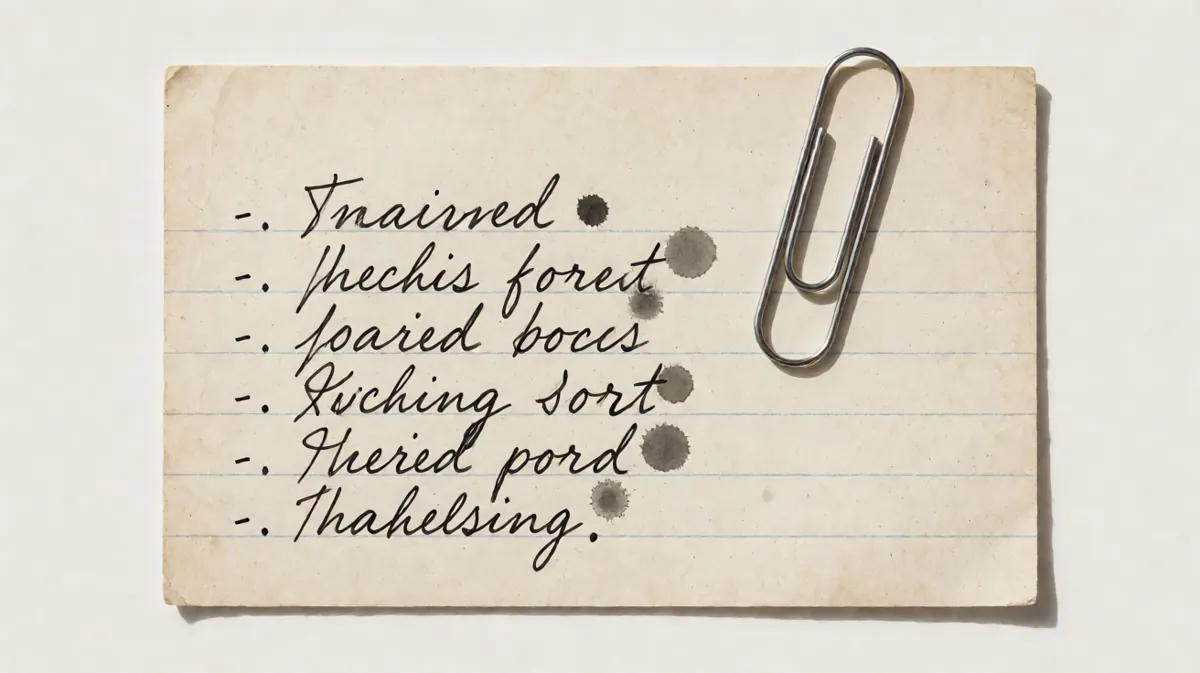 -. Tmairved
-. Thechis forest
-. foaried bocis
-. Xuching sort
-. Thered pord
-. Thahelsing.